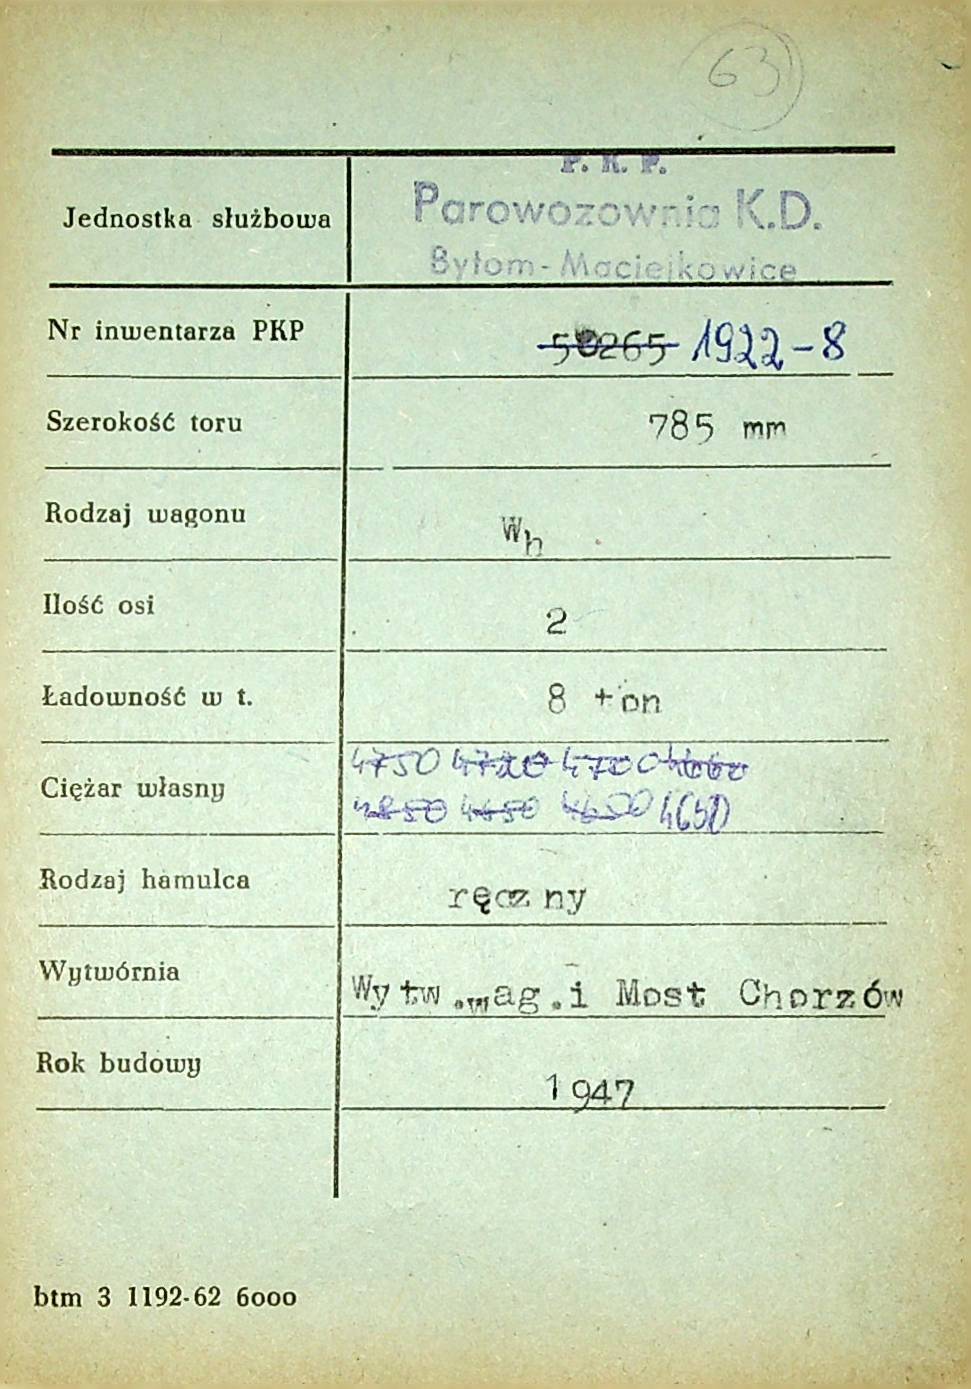 63
P. K. P.
Jednostka służbowa Parowozownia K.D.
Bytom-Maciejkowice
Nr inwentarza PKP 50265 1922-8
Szerokość toru 785 mm
Rodzaj wagonu Wh
Ilość osi 2
Ładowność w t. 8 ton
4750 4720 4700 4660
Ciężar własny 4850 4650 4650 4650
Rodzaj hamulca ręczny
Wytwórnia Wytw.wag.i Most Chorzów
Rok budowy 1947
btm 3 1192-62 6000